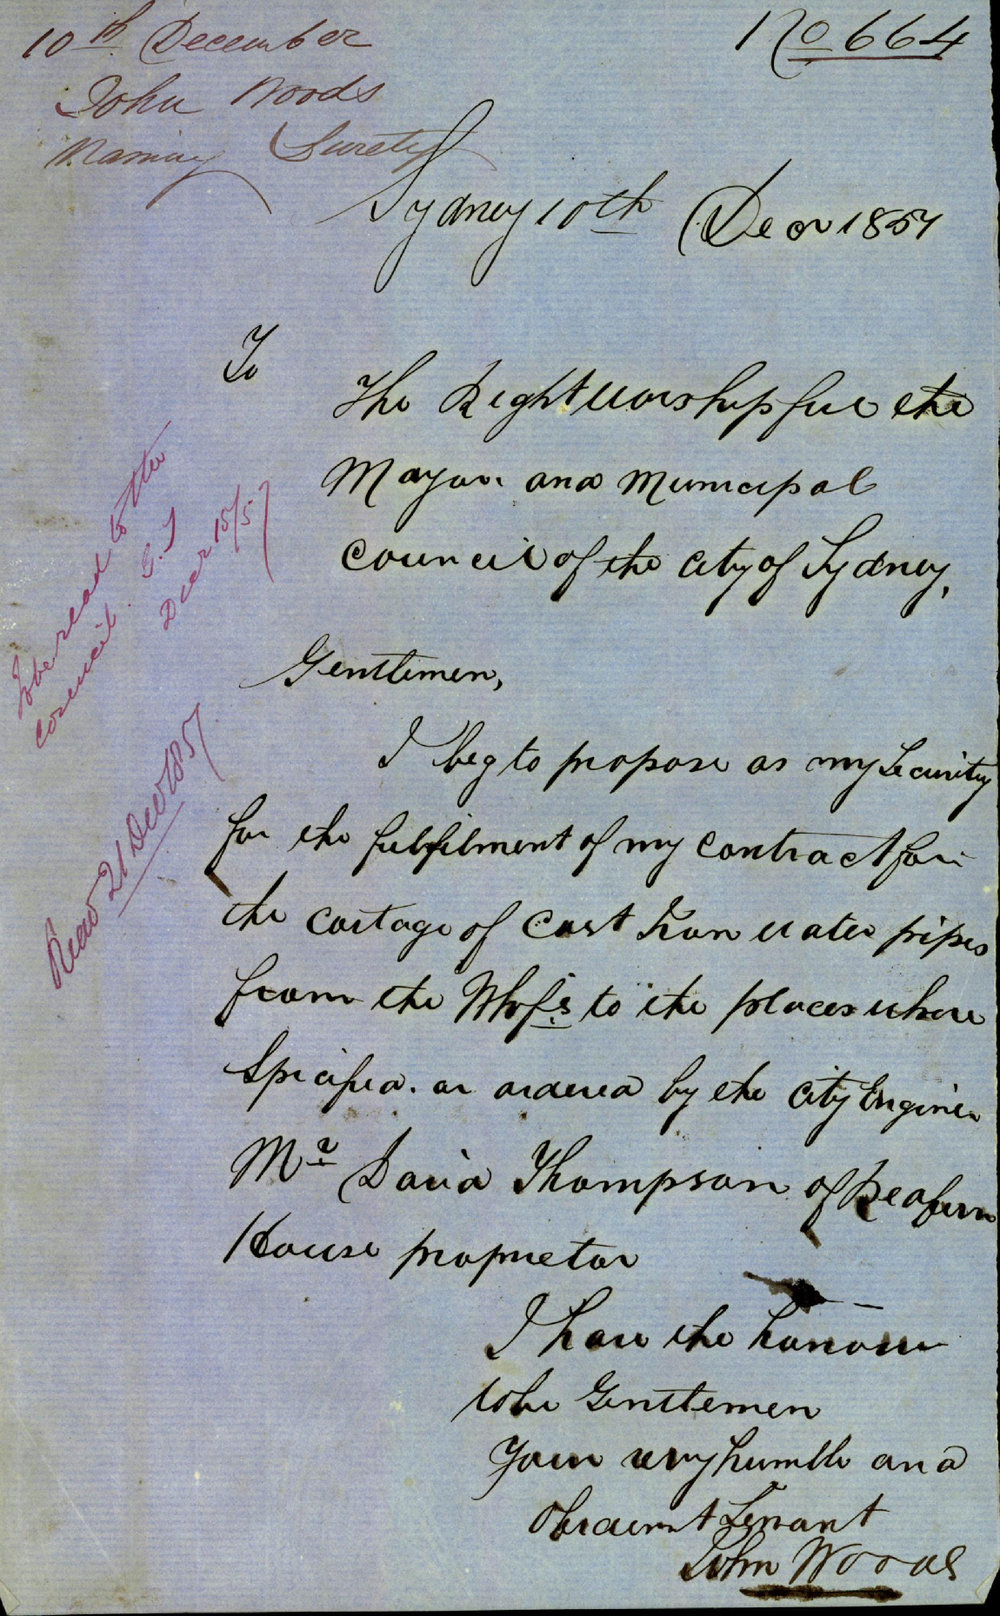 10th December
John Woods
Naming Surety
No 664
Sydney 10th Decr 1857
To
The Right Worshipful the
Mayor and Municipal
Council of the City of Sydney,
Gentlemen,
I beg to propose as my Security
for the fulfilment of my contract for
the cartage of Cast Iron Water pipes
from the Whfs to the places where
Specified or ordered by the City Engineer
Mr David Thompson of Redfern
House proprietor
I have the honour
to be Gentlemen
Your very humble and
Obedient Servant
John Woods
To be read to the
Council
Decr 15/57
Read 21 Decr 1857